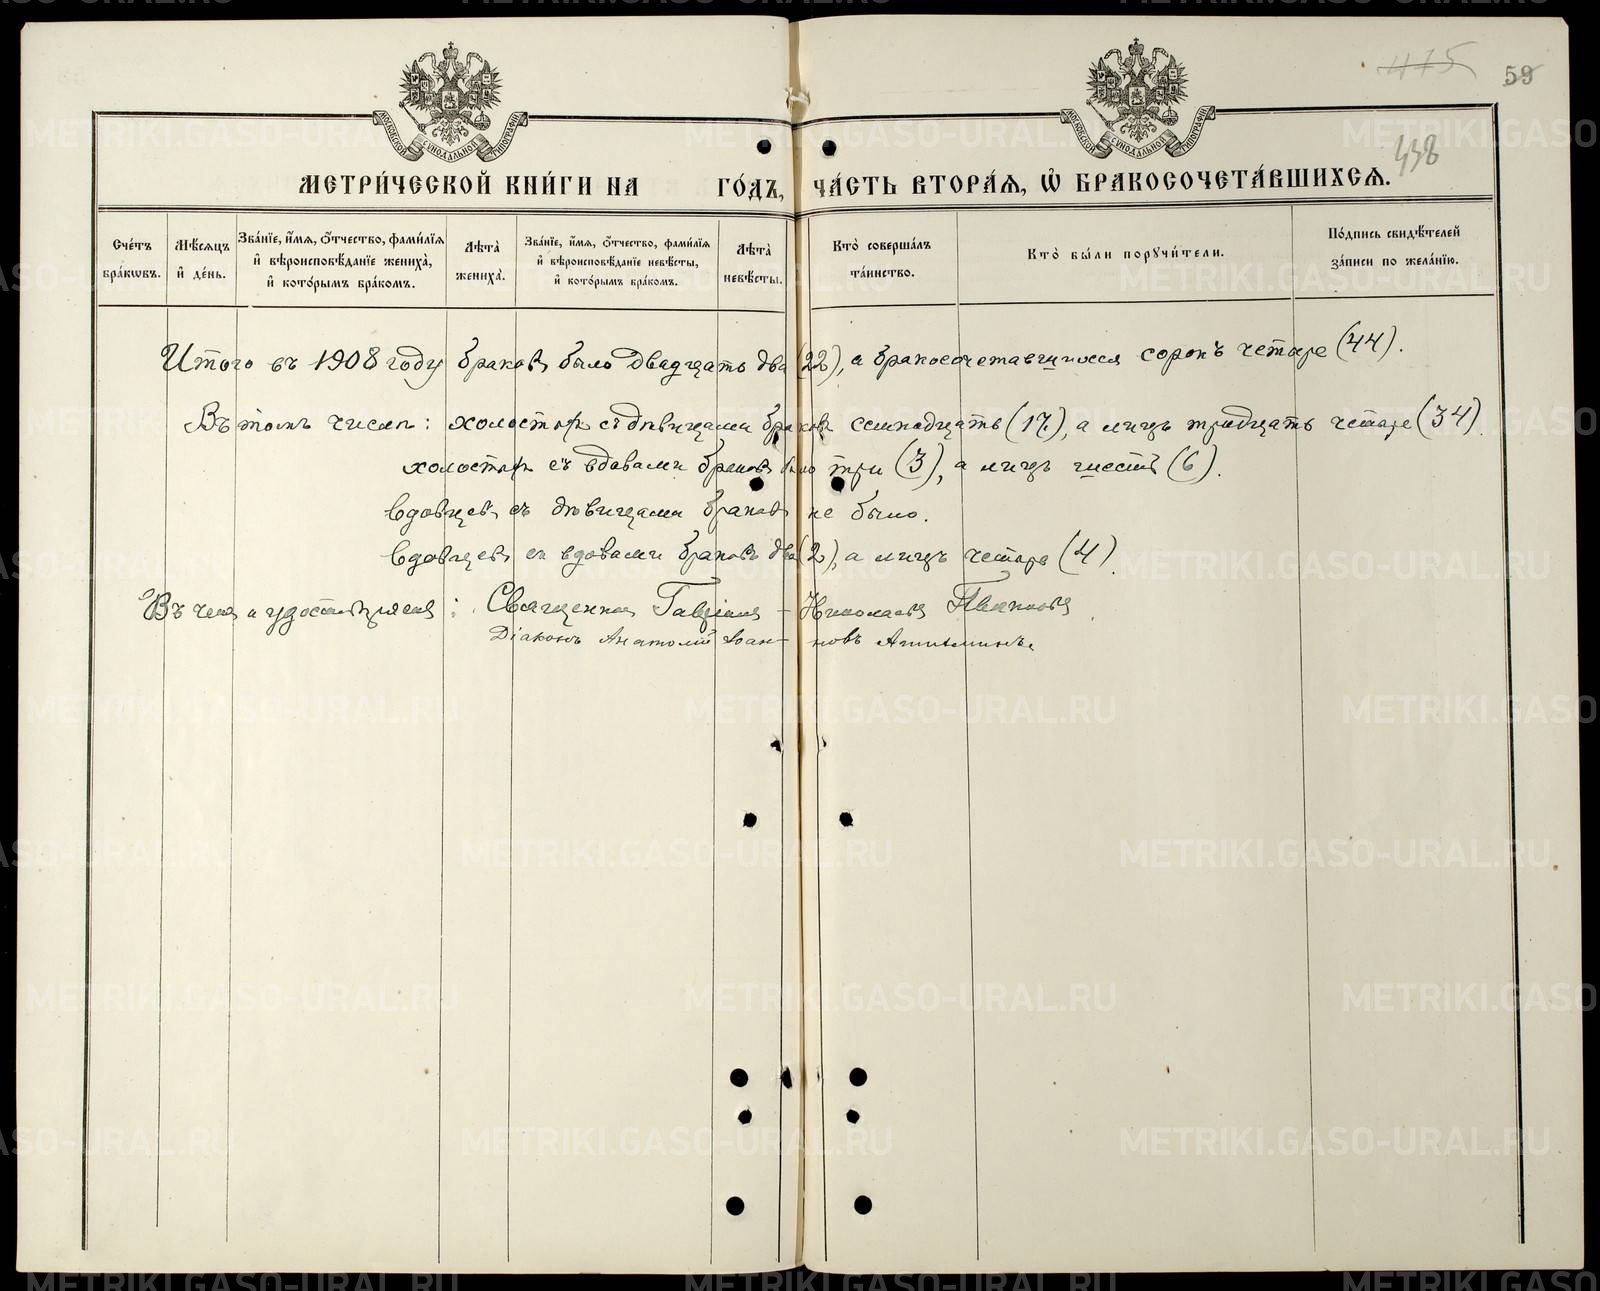 415
59
438
МОСКОВСКОЙ СѴНОДАЛЬНОЙ ТИПОГРАФІИ
МОСКОВСКОЙ СѴНОДАЛЬНОЙ ТИПОГРАФІИ
МЕТРИ́ЧЕСКОЙ КНИ́ГИ НА ГО́ДЪ, ЧА́СТЬ ВТОРА́Я, Ѡ҆ БРАКОСОЧЕТА́ВШИХСЯ.
Сче́тъ бра́кѡвъ.
Мѣ́сяцъ и҆ де́нь.
Зва́нїе, и҆́мя, ѻ҆́тчество, фами́лїя и҆ вѣроисповѣ́данїе жениха̀, и҆ кото́рымъ бра́комъ.
Лѣ́та̀ жениха̀.
Зва́нїе, и҆́мя, ѻ҆́тчество, фами́лїя и҆ вѣроисповѣ́данїе невѣ́сты, и҆ кото́рымъ бра́комъ.
Лѣ́та̀ невѣ́сты.
Кто̀ соверша́лъ та́инство.
Кто̀ бы́ли порꙋчи́тели.
По́дпись свидѣ́телей за́писи по жела́нїю.
Итого въ 1908 году браковъ было двадцать два (22), а бракосочетавшихся сорокъ четыре (44).
Въ томъ числѣ: холостыхъ съ дѣвицами браковъ семнадцать (17), а лицъ тридцать четыре (34).
холостыхъ съ вдовами браковъ было три (3), а лицъ шесть (6).
вдовцевъ съ дѣвицами браковъ не было.
вдовцевъ съ вдовами браковъ два (2), а лицъ четыре (4).
Въ чемъ и удостовѣряемъ: Священникъ Гавріилъ Николаевъ
Діаконъ Анатолій Іоанновъ
METRIKI.GASO-URAL.RU